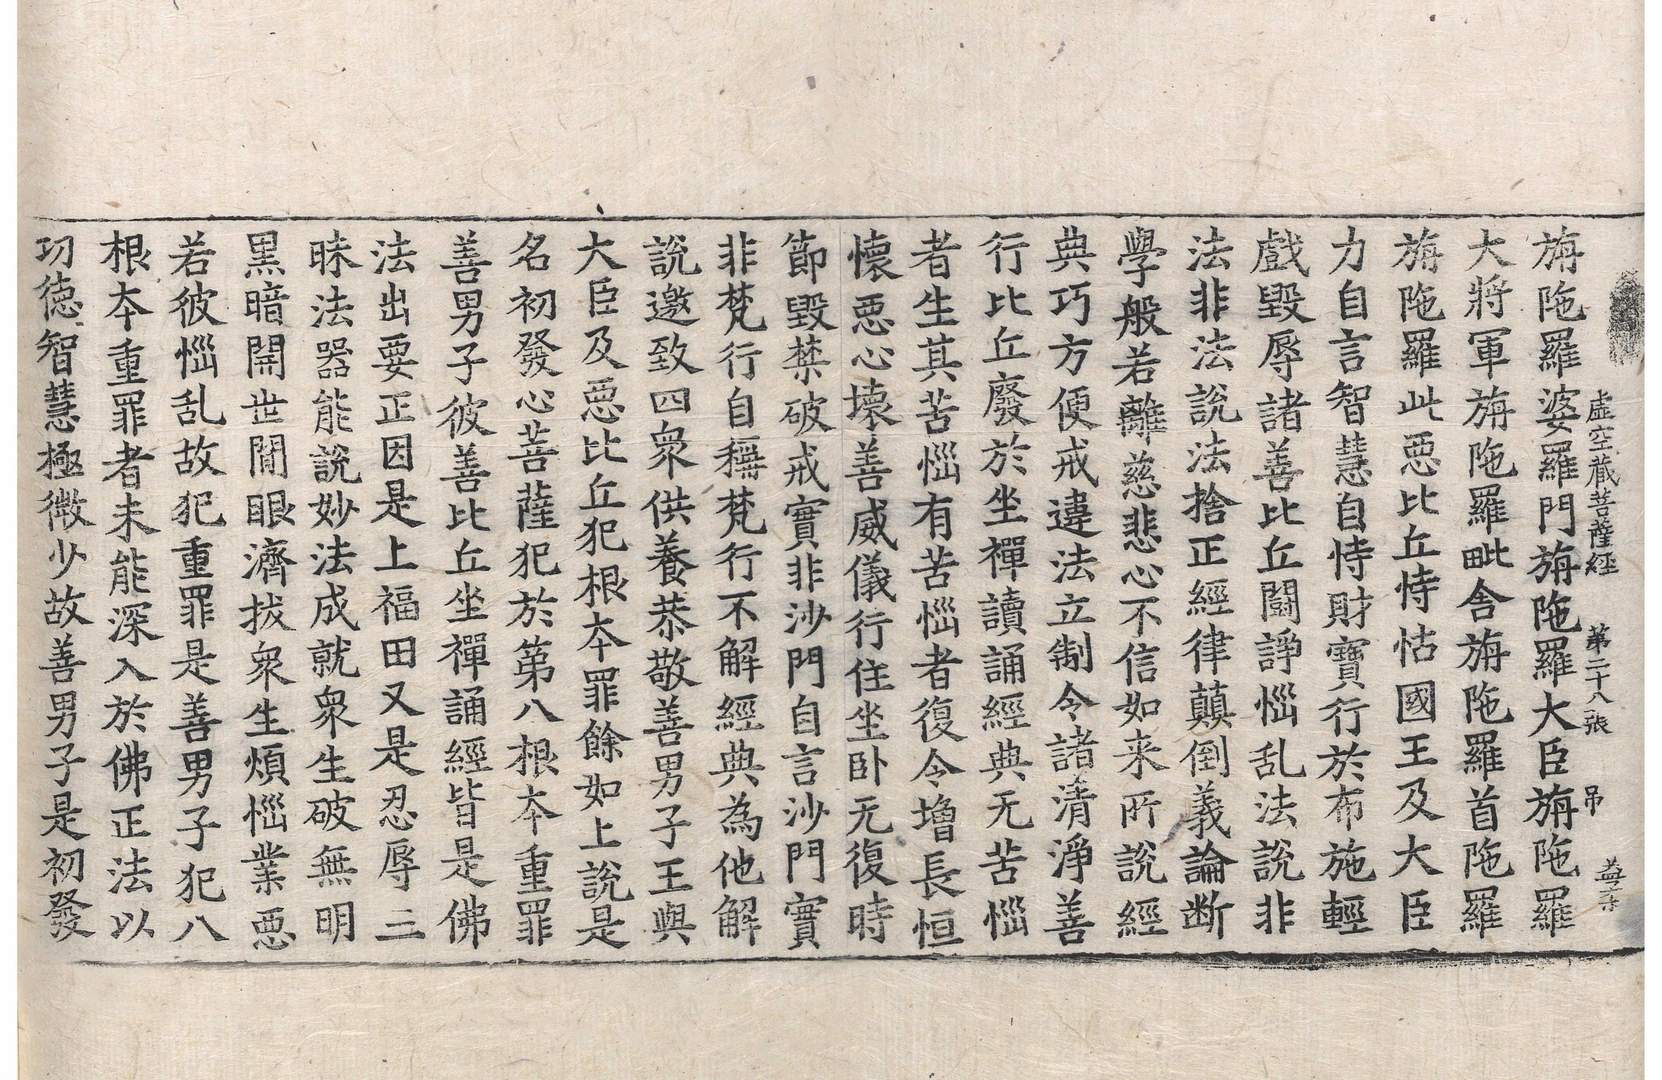 虛空藏菩薩經　第二十八張　吊
旃陁羅婆羅門旃陁羅大臣旃陁羅
大將軍旃陁羅毗舍旃陁羅首陁羅
旃陁羅此惡比丘恃怙國王及大臣
力自言智慧自恃財寶行於布施輕
戲毀辱諸善比丘鬪諍惱乱法說非
法非法說法捨正經律顛倒義論断
學般若離慈悲心不信如来所說經
典巧方便戒違法立制令諸清淨善
行比丘廢於坐禪讀誦經典无苦惱
者生其苦惱有苦惱者復令增長恒
懷惡心壞善威儀行住坐卧无復時
節毀禁破戒實非沙門自言沙門實
非梵行自稱梵行不解經典為他解
說邀致四衆供養恭敬善男子王與
大臣及惡比丘犯根本罪餘如上說是
名初發心菩薩犯於第八根本重罪
善男子彼善比丘坐禪誦經皆是佛
法出要正因是上福田又是忍辱三
昧法器能說妙法成就衆生破無明
黑暗開世間眼濟拔衆生煩惱業惡
若彼惱乱故犯重罪是善男子犯八
根本重罪者未能深入於佛正法以
功德智慧極微少故善男子是初發